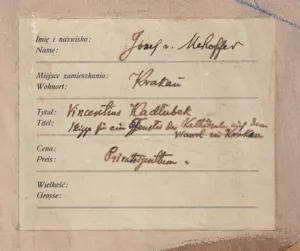 Imię i nazwisko:
Name: Józef v. Mehoffer
Miejsce zamieszkania:
Wohnort: Krakau
Tytuł: Vincentius Kadłubek
Titel: Skizze für ein Fenster der Kathedrale auf dem
Wawel in Krakau
Cena:
Preis: Privateigenthum.
Wielkość:
Grosse: